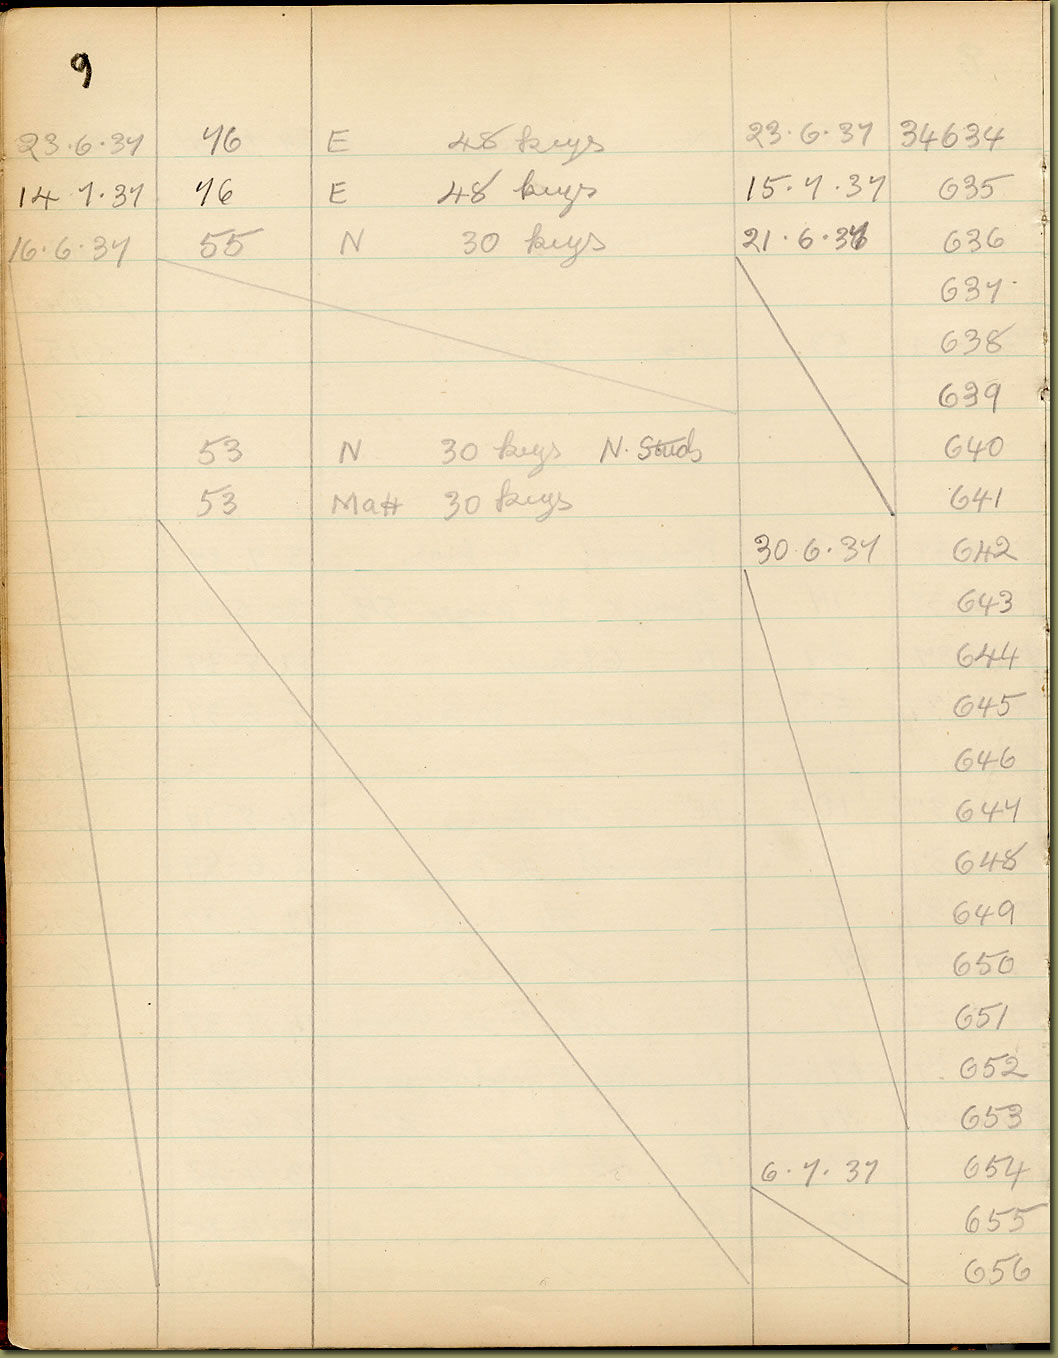 9
23.6.37 76 E 48 keys 23.6.37 34634
14.7.37 76 E 48 keys 15.7.37 635
16.6.37 55 N 30 keys 21.6.37 636
637
638
639
53 N 30 keys N. Studs 640
53 Matt 30 keys 641
30.6.37 642
643
644
645
646
647
648
649
650
651
652
653
6.7.37 654
655
656